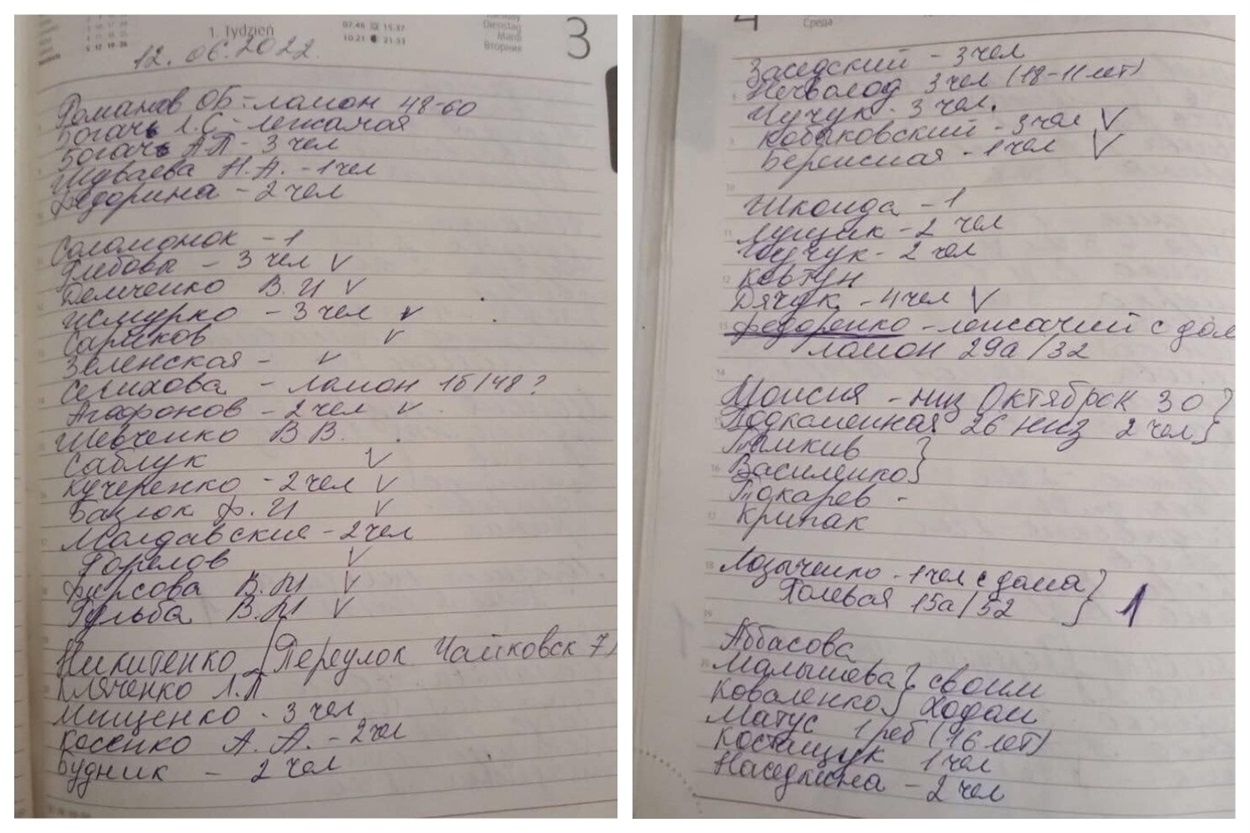 1. Tydzień
07.46 15.37
10.21 21.53
Dienstag
Mardi
Вторник
3
12.06.2022
Романов ОБ - ламон 48-60
Богачь Л.С - лежачая
Богачь АП - 3 чел
Н.А. - 1 чел
Федорина - 2 чел
Соломонок - 1
Глебова - 3 чел V
Демченко В.И V
Исмурко - 3 чел v
Сариков v
Зеленская - v
Селихова - ламон 1б/48?
Агафонов - 2 чел v
Шевченко В В.
Саблук V
Кучеренко - 2 чел V
Базюк Ф.И V
Молдавские - 2 чел
Горелов V
Фирсова В.И V
Гульба В.И V
Никитенко Переулок Чайковск 7
Кляченко Л.П
Мищенко - 3 чел
Косенко А.А. - 2 чел
Будник - 2 чел
4
Среда
Заседский - 3 чел
Нечволод 3 чел (18-11 лет)
Чучук - 3 чел.
Кобаковский - 3 чел V
Бережная - 1 чел V
Шкоида - 1
Лущик - 2 чел
- 2 чел
Ковтун
Дячук - 4 чел V
Федоренко - лежачий с дом
ламон 29а/32
Моисия - низ Октябрск 30 }
Подкаменная 26 низ 2 чел }
Тимкив }
Василенко }
Токарев -
Крипак
Лозыченко - 1 чел с дома }
Полевая 15а/52 } 1
Аббасова
Малышева } своим
Коваленко } ходом
Матус 1 реб (16 лет)
Костищук 1 чел
Наседкина - 2 чел